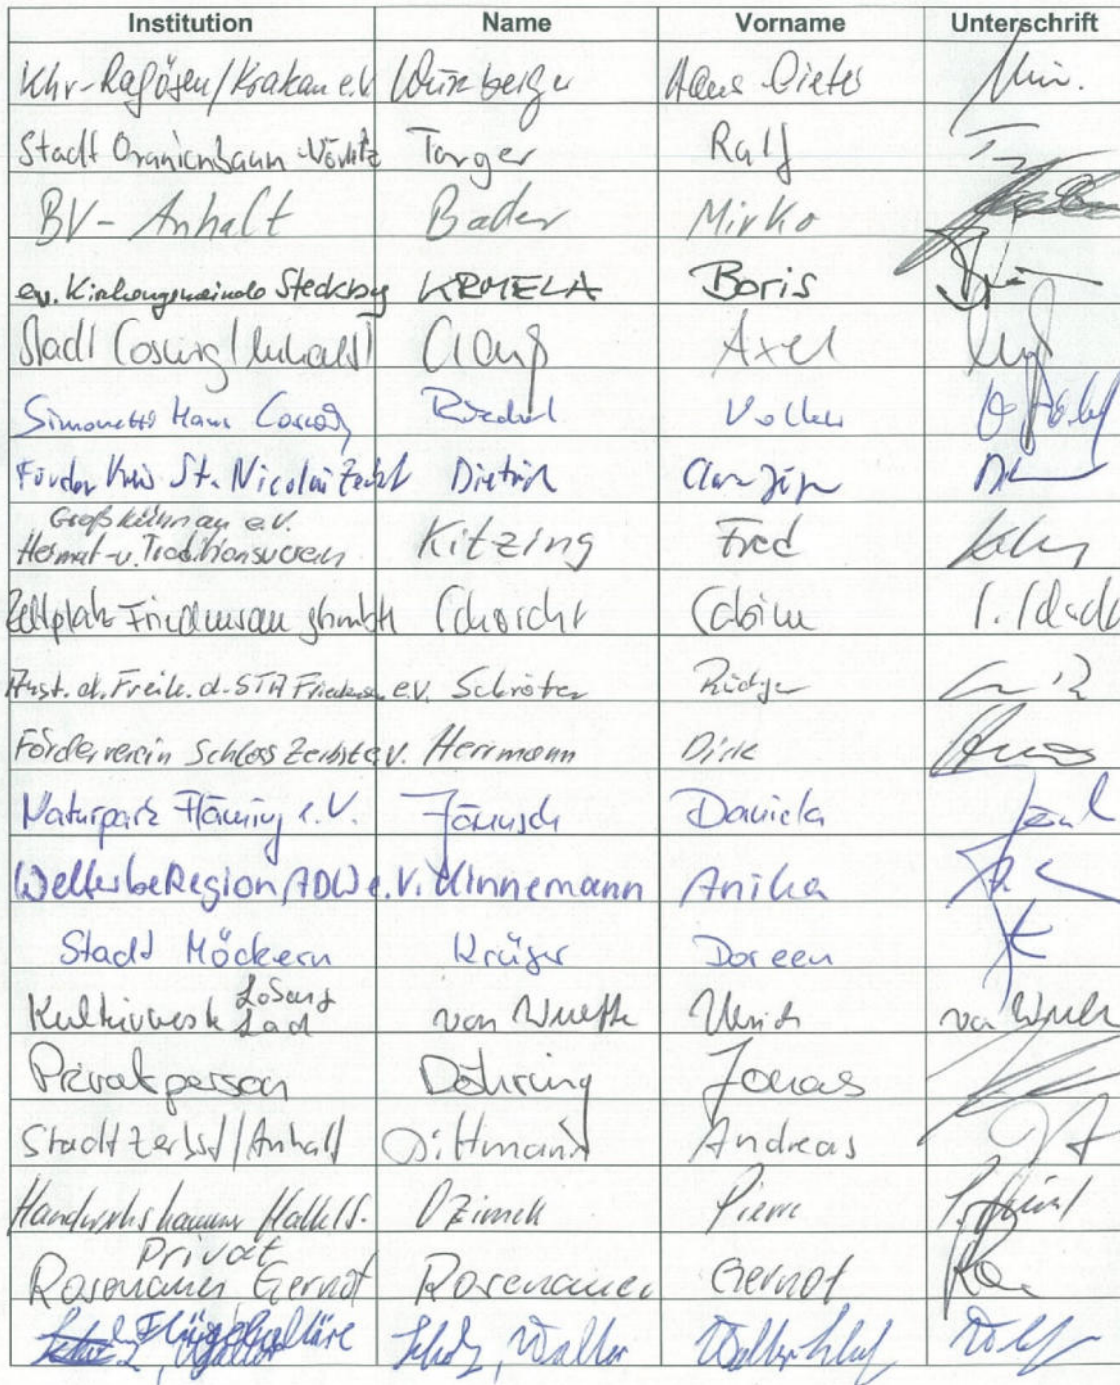 Institution Name Vorname Unterschrift
Khv-Ragösen/Krakau e.V. Würzberger Hans Dieter
Stadt Oranienbaum-Wörlitz Torger Ralf
BV-Anhalt Bader Mirko
ev. Kirchengemeinde Steckby KRMELA Boris
Stadt Coswig (Anhalt) Clauß Axel
Simonetti Haus Coswig Riedel Volker
Förderkreis St. Nicolai Zerbst Dietrich
Großkühnau e.V.
Heimat-u. Traditionsverein Kitzing Fred
Zeltplatz Friedensau gGmbH
d. Freik. d. STA e.V. Schröter Rüdiger
Förderverein Schloss Zerbst e.V. Herrmann Dirk
Naturpark Fläming e.V. Jänusch Daniela
WelterbeRegion ADW e.V. Winnemann Anika
Stadt Möckern Krüger Doreen
Losang
Kulturwerk von Ulrich
Privatperson Döhring Jonas
Stadt Zerbst/Anhalt Dittmann Andreas
Handwerkskammer Halle/S. Ozimek Pierre
Privat
Rosenauer Gernot Rosenauer Gernot
Scholz, Walter